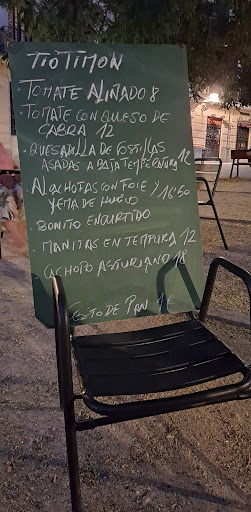 TIOTIMON
· TOMATE ALIÑADO 8
· TOMATE CON QUESO DE
CABRA 12
· QUESADILLA DE COSTILLAS
ASADAS A BAJA TEMPERATURA 12
ALCACHOFAS CON FOIE Y 16'50
YEMA DE HUEVO
· BONITO ENCURTIDO
· MANITAS EN TEMPURA 12
CACHOPO ASTURIANO 18
CESTO DE PAN 1€